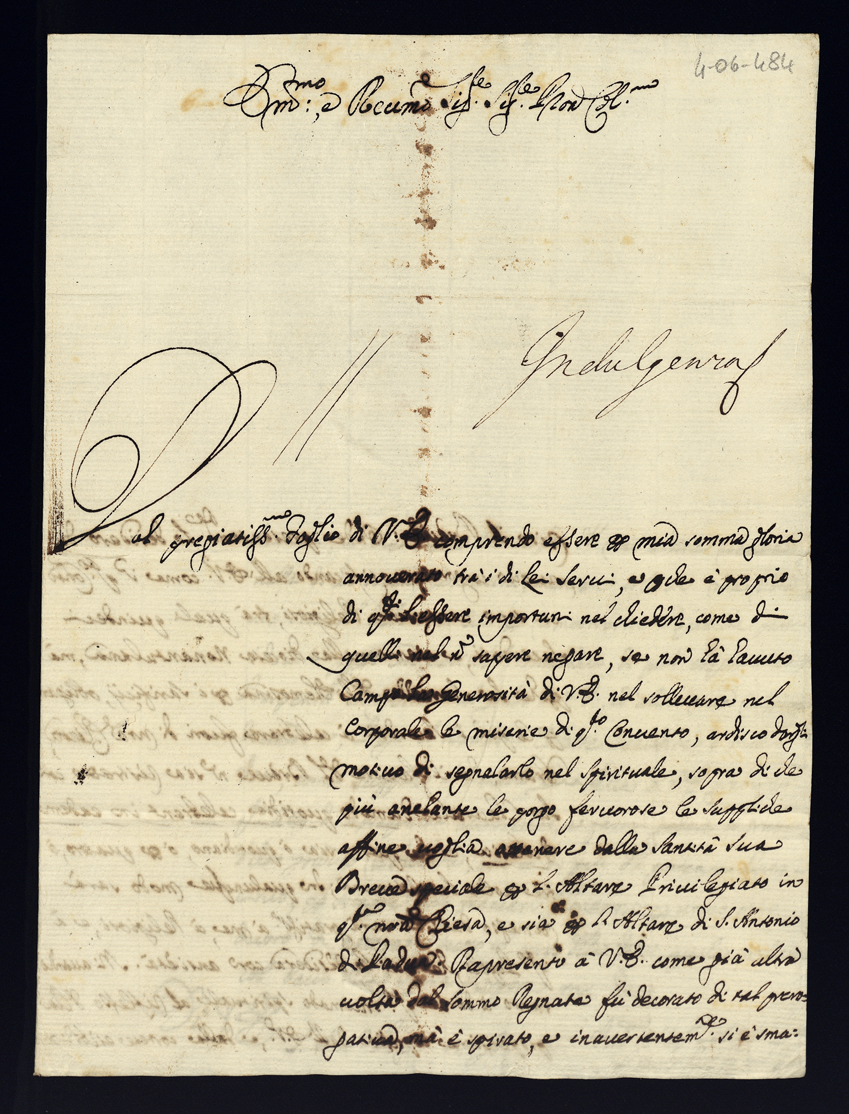 4-06-484
Em.mo: e R.euemo Sig.re Sig.re Pron Col.mo
Indulgenza
Dal pregiatiss.mo foglio di V.E. comprendo essere p mia somma gloria
annouerato trà i di lei serui, e che è proprio
di q.ti l'essere importuni nel chiedere, come di
quelli nel n sapere negare, se non hà hauuto
Campo la Generosità di V.E. nel solleuare nel
Corporale le miserie di q.sto Conuento, ardisco dargli
motiuo di segnalarlo nel spirituale, sopra di che
più anelante le porgo feruorose le suppliche
affine uoglia ottenere dalla Santità Sua
Breue speciale p l'Altare Priuilegiato in
q.sta nrã Chiesa, e sia p l'Altare di S. Antonio
di Padua. Rapresento à V.E. come già altra
uolta dal sommo Regnate fù decorato di tal prero=
gatiua, mà è spirato, e inauertentem.te si è sma: